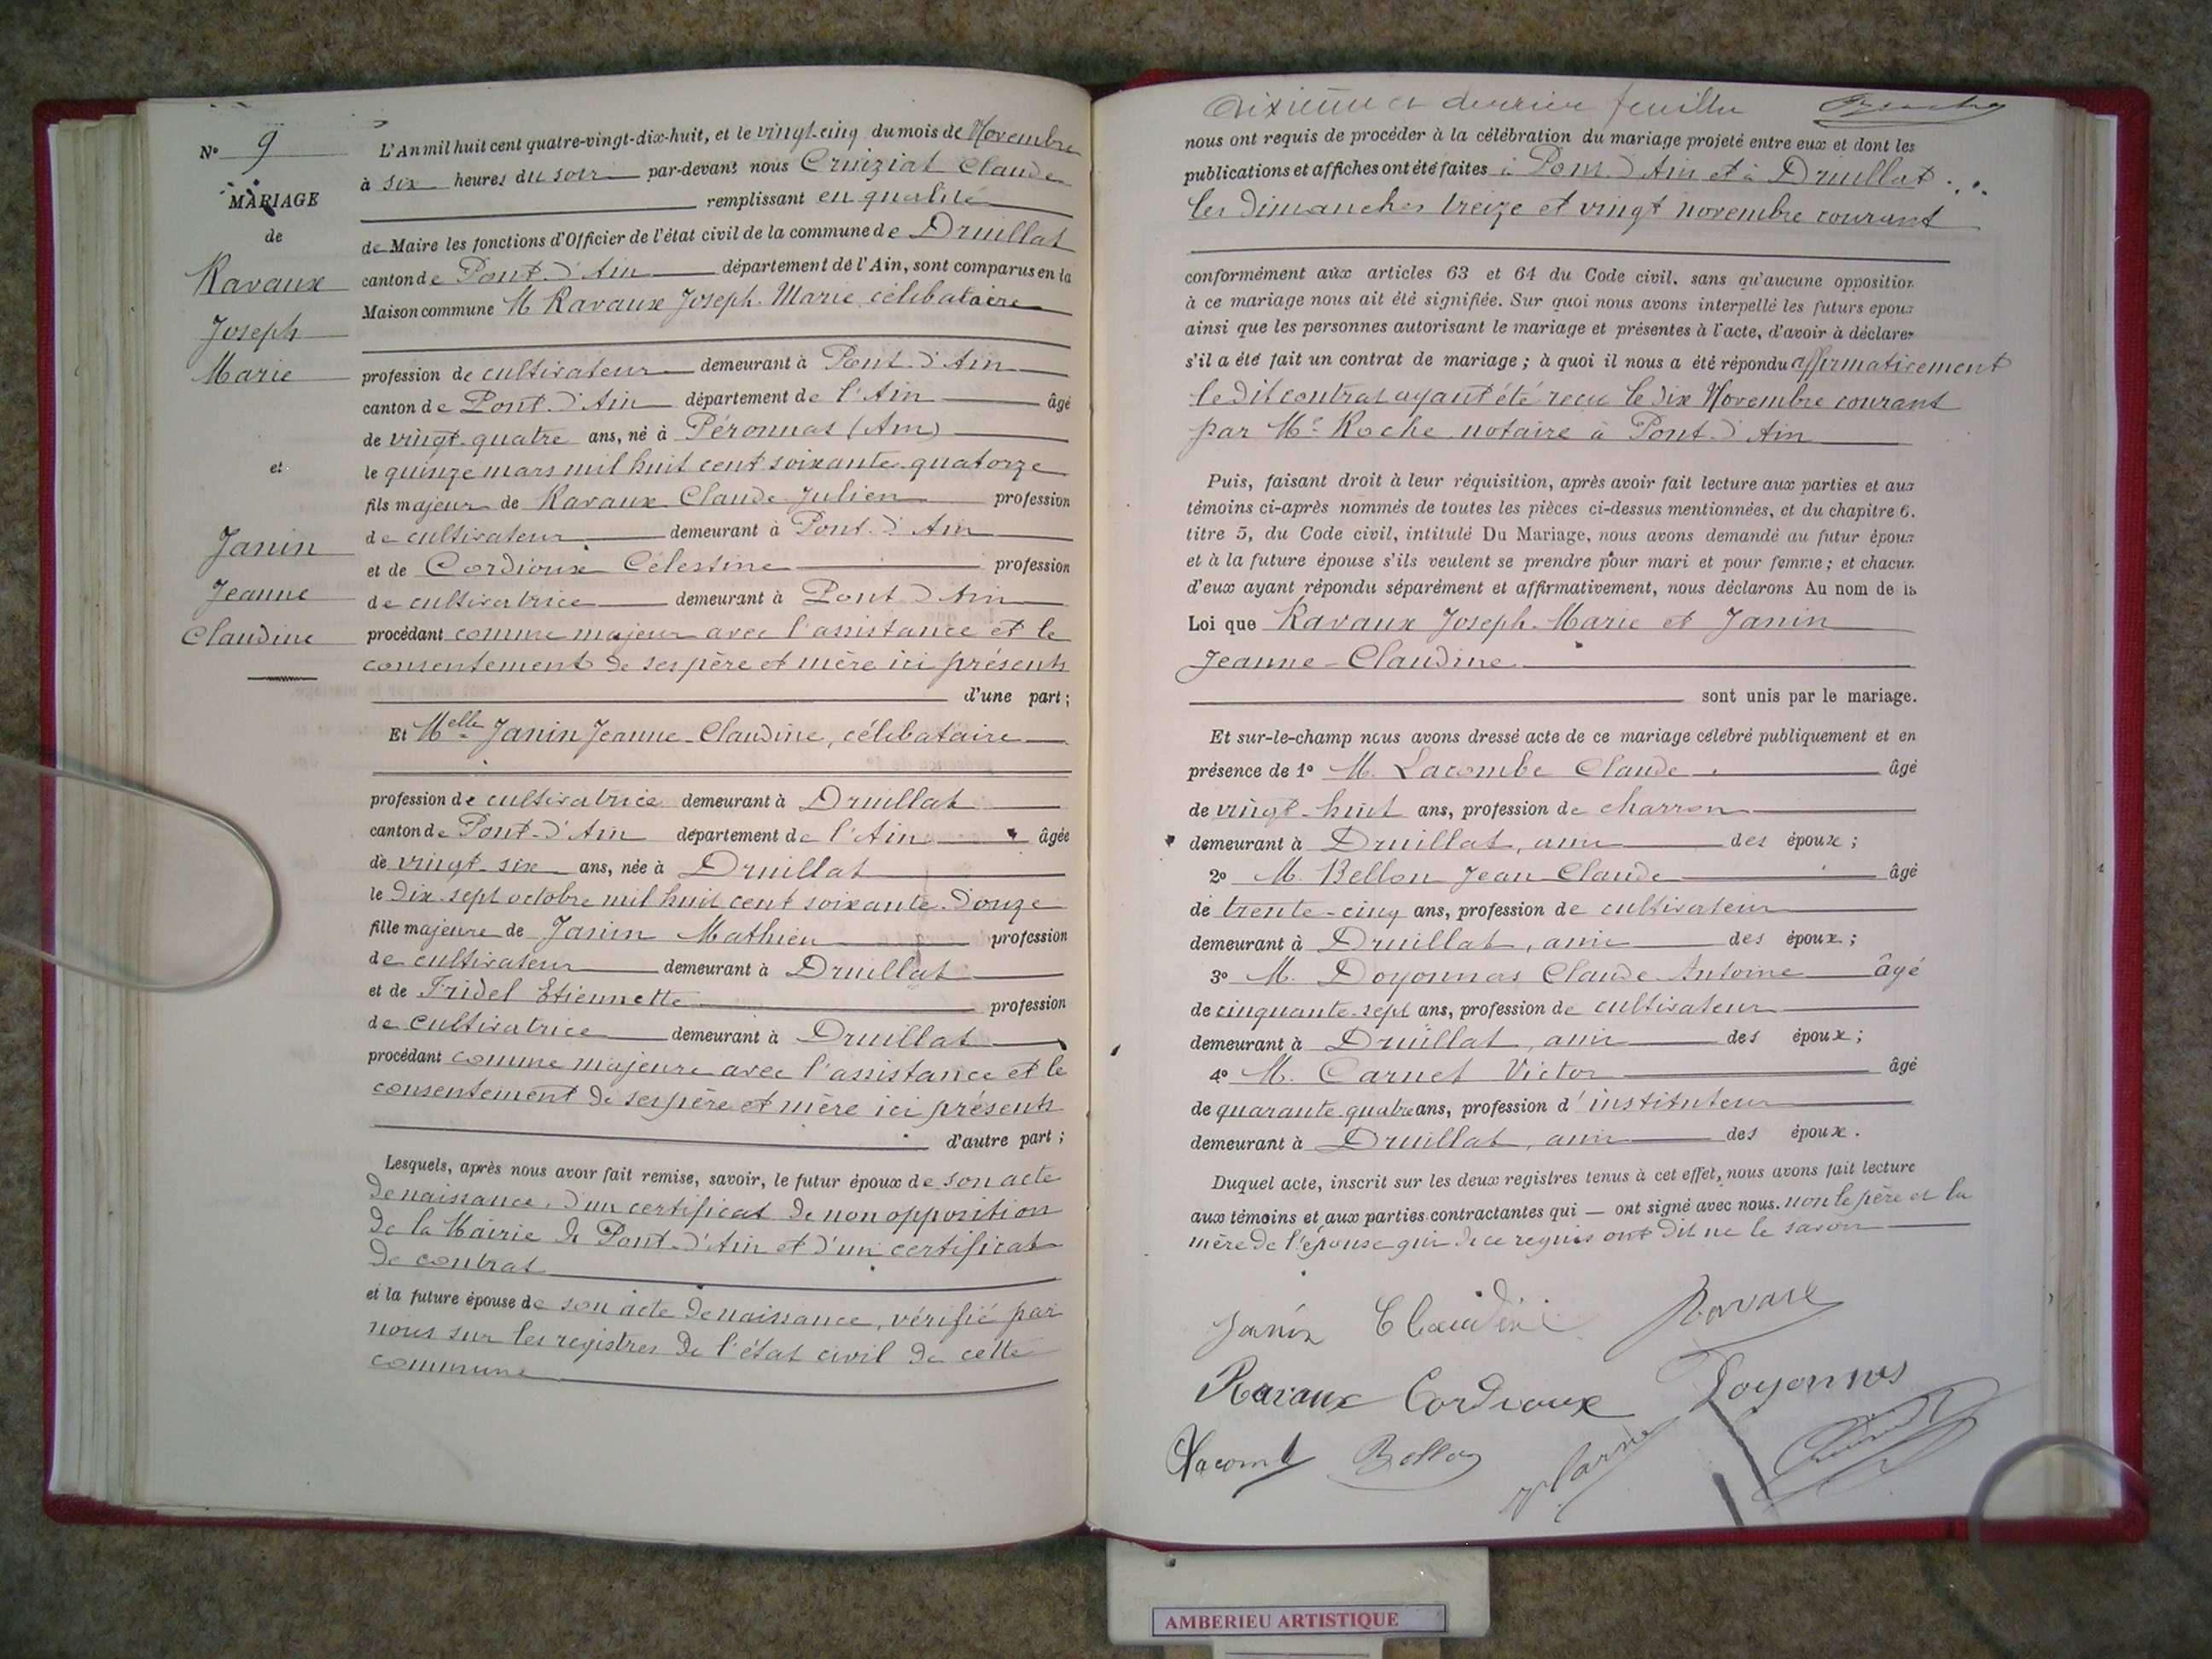 N° 9
MARIAGE
de
Ravaux
Joseph
Marie
et
Janin
Jeanne
Claudine
L'An mil huit cent quatre-vingt-dix-huit, et le vingt-cinq du mois de Novembre
à six heures du soir par-devant nous Cruiziat Claude
remplissant en qualité
de Maire les fonctions d'Officier de l'état civil de la commune de Druillat
canton de Pont-d'Ain département de l'Ain, sont comparus en la
Maison commune M Ravaux Joseph-Marie, célibataire
profession de cultivateur demeurant à Pont-d'Ain
canton de Pont-d'Ain département de l'Ain âgé
de vingt-quatre ans, né à Péronnas (Ain)
le quinze mars mil huit cent soixante-quatorze
fils majeur de Ravaux Claude-Julien profession
de cultivateur demeurant à Pont-d'Ain
et de Cordioux Célestine profession
de cultivatrice demeurant à Pont-d'Ain
procédant comme majeur avec l'assistance et le
consentement de ses père et mère ici présents
d'une part;
Et Melle Janin Jeanne-Claudine, célibataire
profession de cultivatrice demeurant à Druillat
canton de Pont-d'Ain département de l'Ain âgée
de vingt-six ans, née à Druillat
le dix-sept octobre mil huit cent soixante-douze
fille majeure de Janin Mathieu profession
de cultivateur demeurant à Druillat
et de Fridel Etiennette profession
de cultivatrice demeurant à Druillat
procédant comme majeure avec l'assistance et le
consentement de ses père et mère ici présents
d'autre part;
Lesquels, après nous avoir fait remise, savoir, le futur époux de son acte
de naissance, d'un certificat de non opposition
de la Mairie de Pont-d'Ain et d'un certificat
de contrat
et la future épouse de son acte de naissance, vérifié par
nous sur les registres de l'état civil de cette
commune
dixième et dernier feuillet
nous ont requis de procéder à la célébration du mariage projeté entre eux et dont les
publications et affiches ont été faites à Pont-d'Ain et à Druillat
les dimanches treize et vingt novembre courant
conformément aux articles 63 et 64 du Code civil, sans qu'aucune opposition
à ce mariage nous ait été signifiée. Sur quoi nous avons interpellé les futurs époux
ainsi que les personnes autorisant le mariage et présentes à l'acte, d'avoir à déclarer
s'il a été fait un contrat de mariage; à quoi il nous a été répondu affirmativement
le dit contrat ayant été reçu le dix Novembre courant
par Me Roche notaire à Pont-d'Ain
Puis, faisant droit à leur réquisition, après avoir fait lecture aux parties et aux
témoins ci-après nommés de toutes les pièces ci-dessus mentionnées, et du chapitre 6.
titre 5, du Code civil, intitulé Du Mariage, nous avons demandé au futur époux
et à la future épouse s'ils veulent se prendre pour mari et pour femme; et chacun
d'eux ayant répondu séparément et affirmativement, nous déclarons Au nom de la
Loi que Ravaux Joseph-Marie et Janin
Jeanne-Claudine
sont unis par le mariage.
Et sur-le-champ nous avons dressé acte de ce mariage célébré publiquement et en
présence de 1° M. Lacombe Claude âgé
de vingt-huit ans, profession de charron
demeurant à Druillat, ami des époux;
2° M. Bellon Jean Claude âgé
de trente-cinq ans, profession de cultivateur
demeurant à Druillat, ami des époux;
3° M. Doyonnas Claude Antoine âgé
de cinquante-sept ans, profession de cultivateur
demeurant à Druillat, ami des époux;
4° M. Carnet Victor âgé
de quarante-quatre ans, profession d'instituteur
demeurant à Druillat, ami des époux.
Duquel acte, inscrit sur les deux registres tenus à cet effet, nous avons fait lecture
aux témoins et aux parties contractantes qui — ont signé avec nous. non le père et la
mère de l'épouse qui de ce requis ont dit ne le savoir
Janin Claudine Ravaux
Ravaux Cordioux Doyonnas
Lacombe Bellon
AMBERIEU ARTISTIQUE